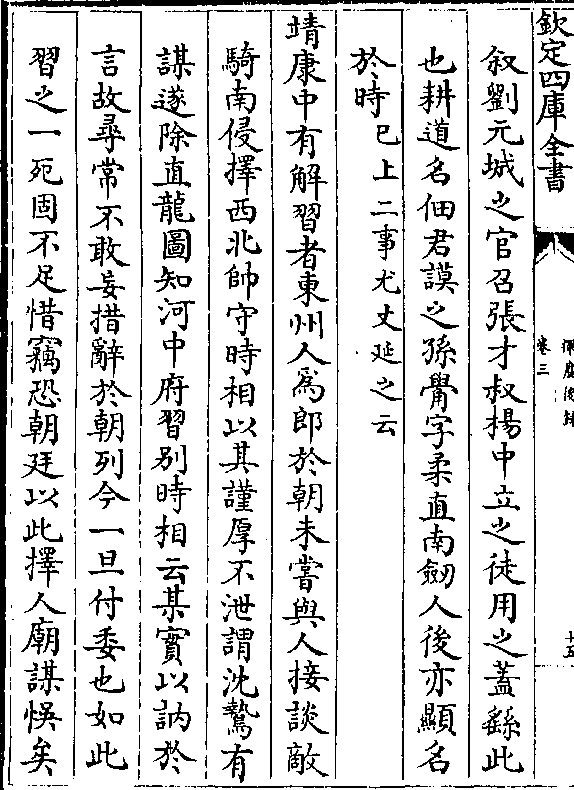 欽定四庫全書
卷三
十五
叙劉元城之官召張才叔楊中立之徒用之蓋繇此
也耕道名佃君謨之孫觷字柔直南劒人後亦顯名
於時已上二事尤丈延之云
靖康中有解習者東州人爲郎於朝未嘗與人接談敵
騎南侵擇西北帥守時相以其謹厚不泄謂沈鷙有
謀遂除直龍圖知河中府習別時相云某實以訥於
言故尋常不敢妄措辭於朝列今一旦付委也如此
習之一死固不足惜竊恐朝廷以此擇人廟謀悞矣